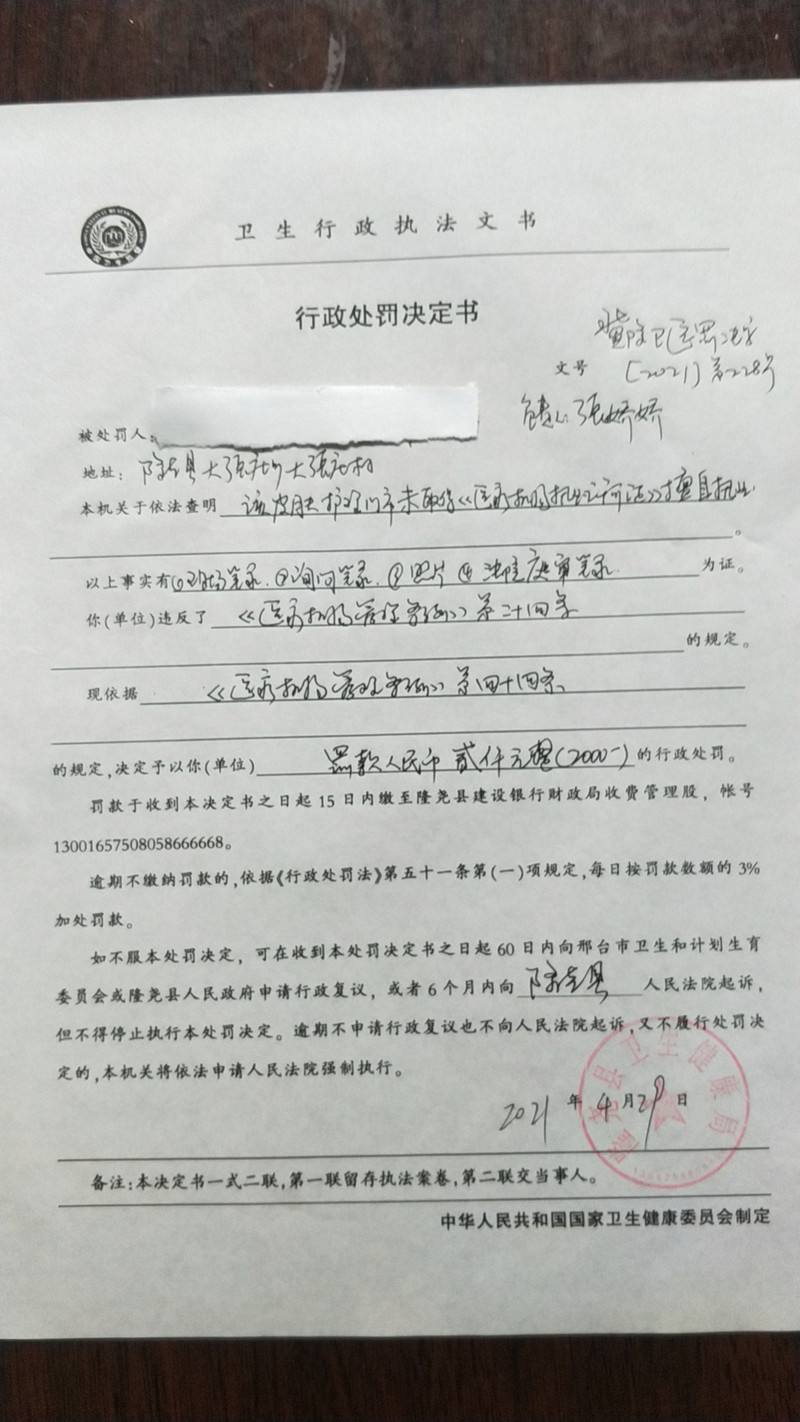 卫生行政执法文书
行政处罚决定书
文号
〔2021〕第228号
张娇娇
被处罚人:
地址: 隆尧县大张庄乡大张庄村
本机关于依法查明 该皮肤护理门市未取得《医疗机构执业许可证》擅自执业
。
以上事实有①现场笔录.②询问笔录.③照片④ 为证。
你(单位)违反了 《医疗机构管理条例》第二十四条
的规定。
现依据 《医疗机构管理条例》第四十四条
的规定,决定予以你(单位) 罚款人民币贰仟元整(2000-) 的行政处罚。
罚款于收到本决定书之日起15日内缴至隆尧县建设银行财政局收费管理股,帐号
13001657508058666668。
逾期不缴纳罚款的,依据《行政处罚法》第五十一条第(一)项规定,每日按罚款数额的3%
加处罚款。
如不服本处罚决定,可在收到本处罚决定书之日起60日内向邢台市卫生和计划生育
委员会或隆尧县人民政府申请行政复议,或者6个月内向 隆尧县 人民法院起诉,
但不得停止执行本处罚决定。逾期不申请行政复议也不向人民法院起诉,又不履行处罚决
定的,本机关将依法申请人民法院强制执行。
隆尧县卫生健康局
2021年4月29日
备注:本决定书一式二联,第一联留存执法案卷,第二联交当事人。
中华人民共和国国家卫生健康委员会制定